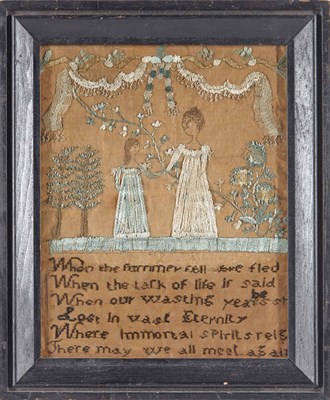 When the are fled
When the task of life is said
When our wasting years be
Lost in vast Eternity
Where immortal spirits reig
There may we all meet agai